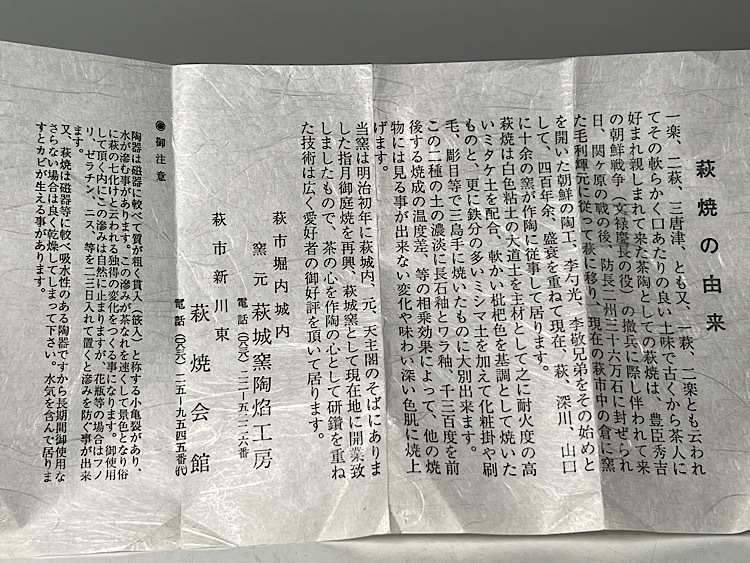 萩焼の由来
一楽、二萩、三唐津、とも又、一萩、二楽とも云われ
てその軟らかく口あたりの良い土味で古くから茶人に
好まれ親しまれて来た茶陶としての萩焼は、豊臣秀吉
の朝鮮戦争(文禄慶長の役)の撤兵に際し伴われて来
日、関ヶ原の戦の後、防長二州三十六万石に封ぜられ
た毛利輝元に従って萩に移り、現在の萩市中の倉に窯
を開いた朝鮮の陶工、李勺光、李敬兄弟をその始めと
して、四百年余、盛衰を重ねて現在、萩、深川、山口
に十余の窯が作陶に従事して居ります。
萩焼は白色粘土の大道土を主材として之に耐火度の高
いミタケ土を配合、軟かい枇杷色を基調として焼いた
ものと、更に鉄分の多いミシマ土を加えて化粧掛や刷
毛、彫目等で三島手に焼いたものに大別出来ます。
この二種の土の濃淡に長石釉とワラ釉、千三百度を前
後する焼成の温度差、等の相乗効果によって、他の焼
物には見る事が出来ない変化や味わい深い色肌に焼上
げます。
当窯は明治初年に萩城内、元、天主閣のそばにありま
した指月御庭焼を再興、萩城窯として現在地に開業致
しましたもので、茶の心を作陶の心として研鑽を重ね
た技術は広く愛好者の御好評を頂いて居ります。
萩市堀内城内
窯元 萩城窯陶焰工房
電話(〇八三八)二二-五二二六番
萩市新川東
萩焼会館
電話(〇八三八)二五-九五四五番㈹
◉御注意
陶器は磁器に較べて質が粗く貫入(嵌入)と称する小亀裂があり、
水が滲む事があります。この滲みが茶なれを速くして景色となり俗
に萩の七化けと云われる独得の変化をつくる事になります。御使用
して頂く内にこの滲みは自然に止まりますが、花瓶等の場合はフノ
リ、ゼラチン、ニス、等を二三日入れて置くと滲みを防ぐ事が出来
ます。
又、萩焼は磁器等に較べ吸水性のある陶器ですから長期間御使用な
さらない場合は良く乾燥してしまって下さい。水気を含んで居りま
すとカビが生える事があります。